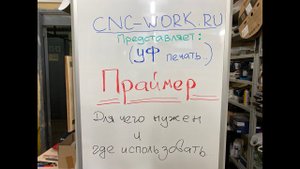 CNC-WORK.RU
Представляет:
(УФ печать)
Праймер
Для чего нужен
и
где использовать